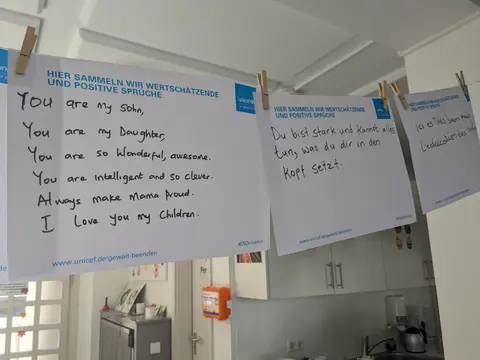 HIER SAMMELN WIR WERTSCHÄTZENDE
UND POSITIVE SPRÜCHE
unicef
You are my sohn,
You are my Daughter,
You are so Wonderful, awesome.
You are intelligent and so clever.
Always make Mama Proud.
I Love you my Children.
www.unicef.de/gewalt-beenden
HIER SAMMELN WIR WERTSCHÄTZENDE
UND POSITIVE SPRÜCHE
Du bist stark und kannst alles
tun, was du dir in den
Kopf setzt.
www.unicef.de/gewalt-beenden
HIER SAMMELN WIR
UND POSITIVE SPRÜCHE